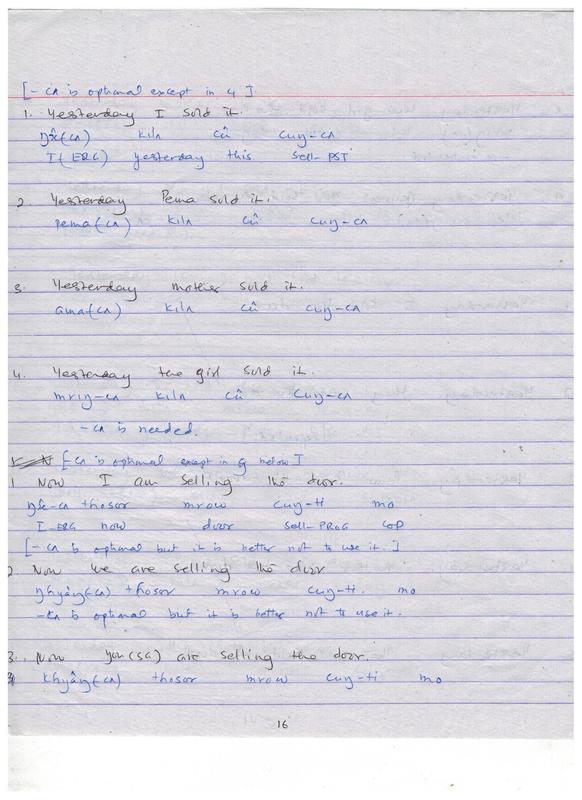 [-cʌ is optional except in 4]
1. Yesterday I sold it.
ŋɤ̂(cʌ) kilʌ cû cuŋ-cʌ
I(ERG) yesterday this sell-PST
2. Yesterday Pema sold it.
pema(cʌ) kilʌ cû cuŋ-cʌ
3. Yesterday mother sold it.
ama(cʌ) kilʌ cû cuŋ-cʌ
4. Yesterday the girl sold it.
mriŋ-cʌ kilʌ cû cuŋ-cʌ
-cʌ is needed.
[-cʌ is optional except in 9 below]
1 Now I am selling the door.
thosor mrow cuŋ-ti mo
I-ERG now door sell-PROG COP
[-cʌ is optional but it is better not to use it.]
2. Now we are selling the door
ŋhyâŋ(cʌ) thosor mrow cuŋ-ti mo
-cʌ is optional but it is better not to use it.
3. Now you(SG) are selling the door.
khyâŋ(cʌ) thosor mrow cuŋ-ti mo
16